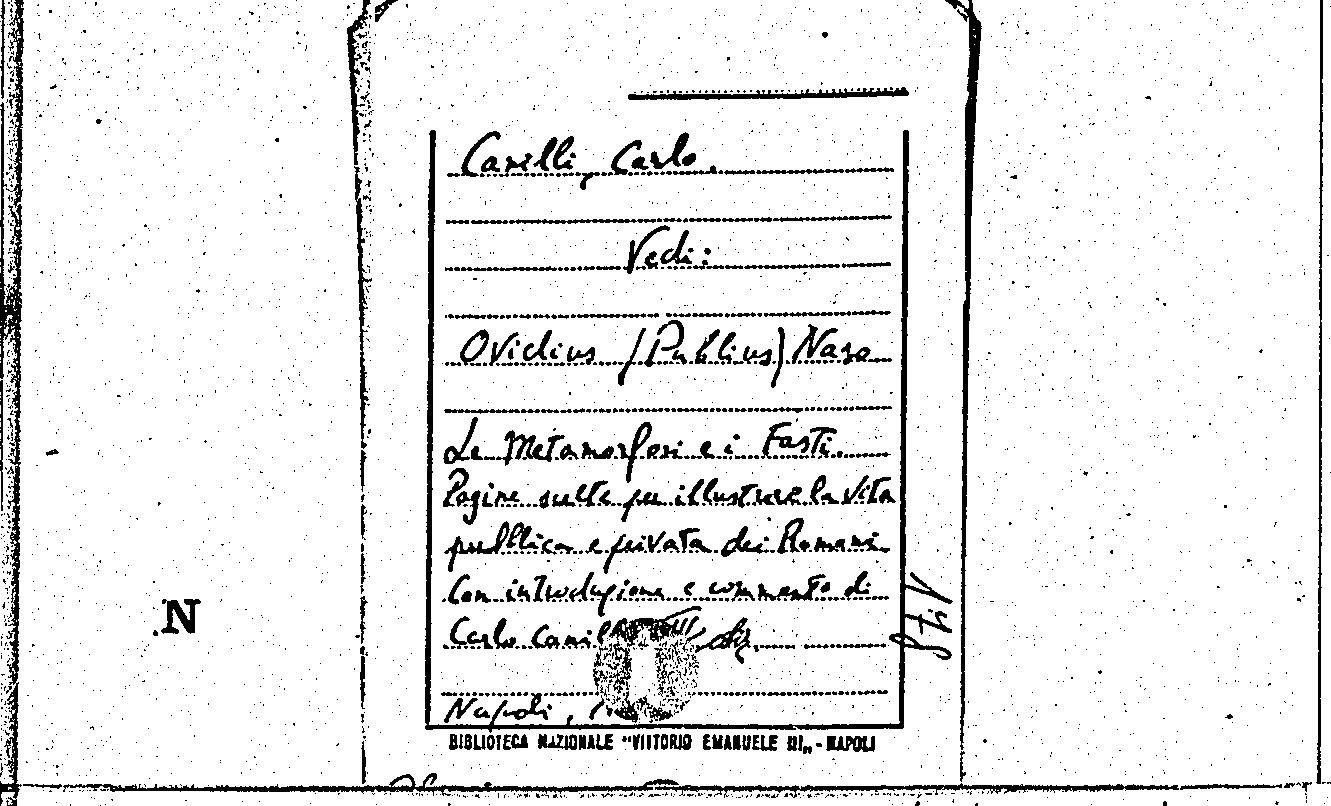 Canilli, Carlo.
Vedi:
Ovidius (Publius) Naso
Le Metamorfosi e i Fasti.
Pagine scelte per illustrare la vita
pubblica e privata dei Romani
Con introduzione e commento di
Carlo
Napoli,
BIBLIOTECA NAZIONALE "VITTORIO EMANUELE III" - NAPOLI
N